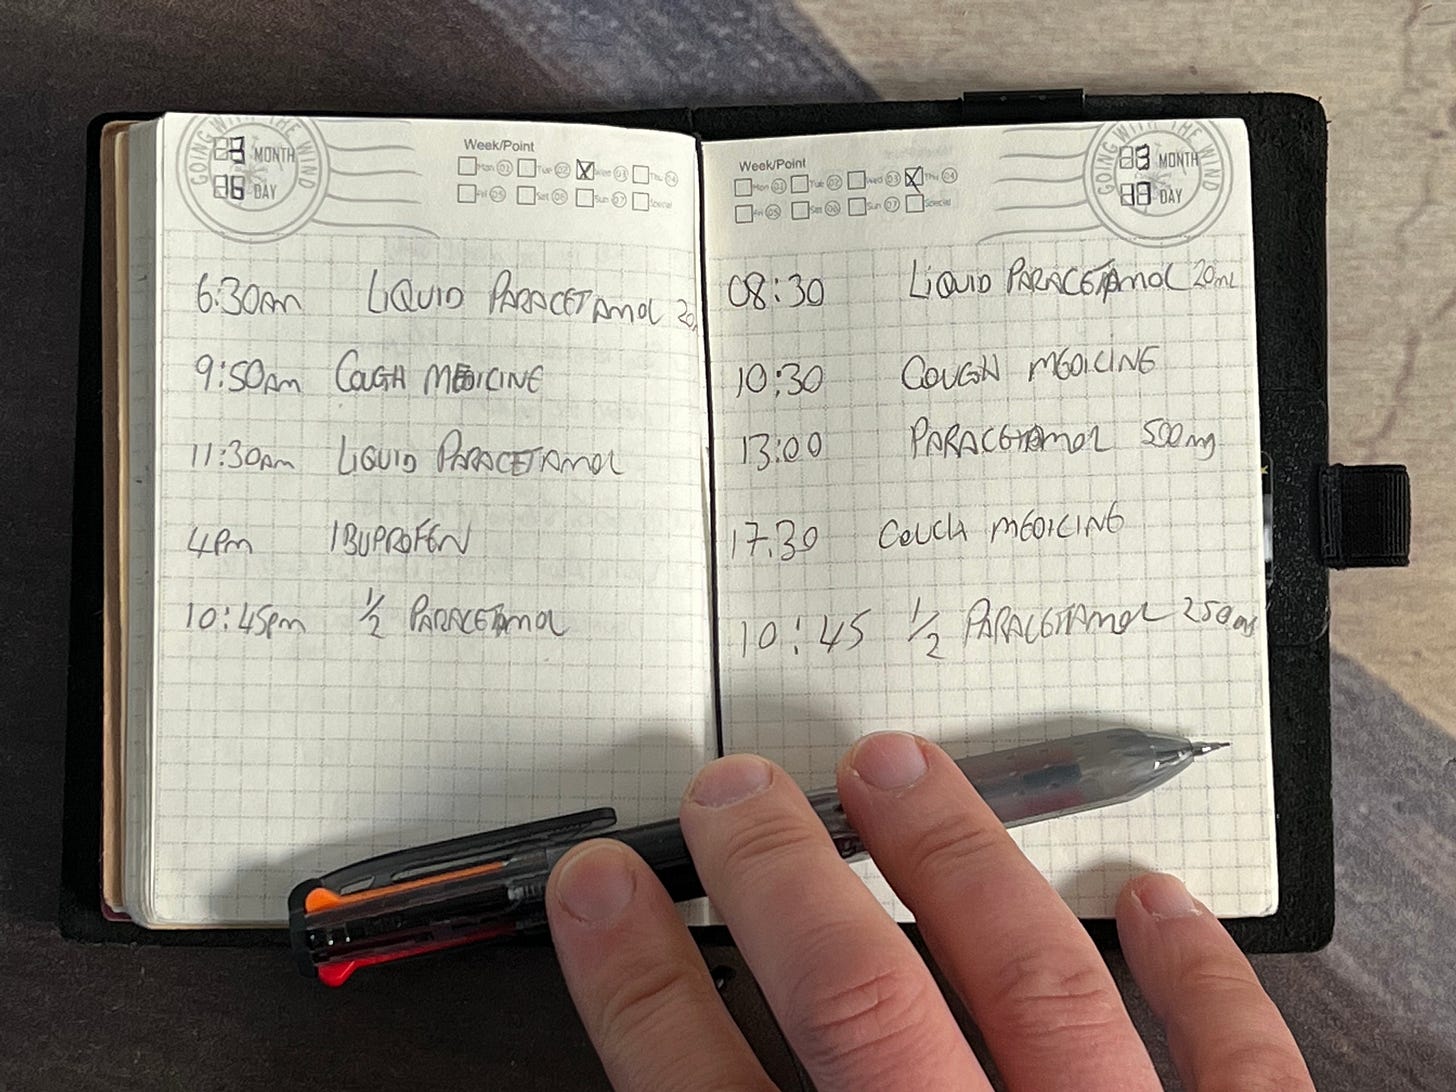 GOING WITH THE WIND
3 MONTH
16 DAY
Week/Point
Mon 01 Tue 02 Wed 03 Thu 04
Fri 05 Sat 06 Sun 07 Special
6:30am LIQUID PARACETAMOL
9:50am COUGH MEDICINE
11:30am LIQUID PARACETAMOL
4pm IBUPROFEN
10:45pm 1/2 PARACETAMOL
Week/Point
Mon 01 Tue 02 Wed 03 Thu 04
Fri 05 Sat 06 Sun 07 Special
GOING WITH THE WIND
MONTH
DAY
08:30 LIQUID PARACETAMOL 20mL
10:30 COUGH MEDICINE
13:00 PARACETAMOL 500mg
17.30 COUGH MEDICINE
10:45 1/2 PARACETAMOL 250mg